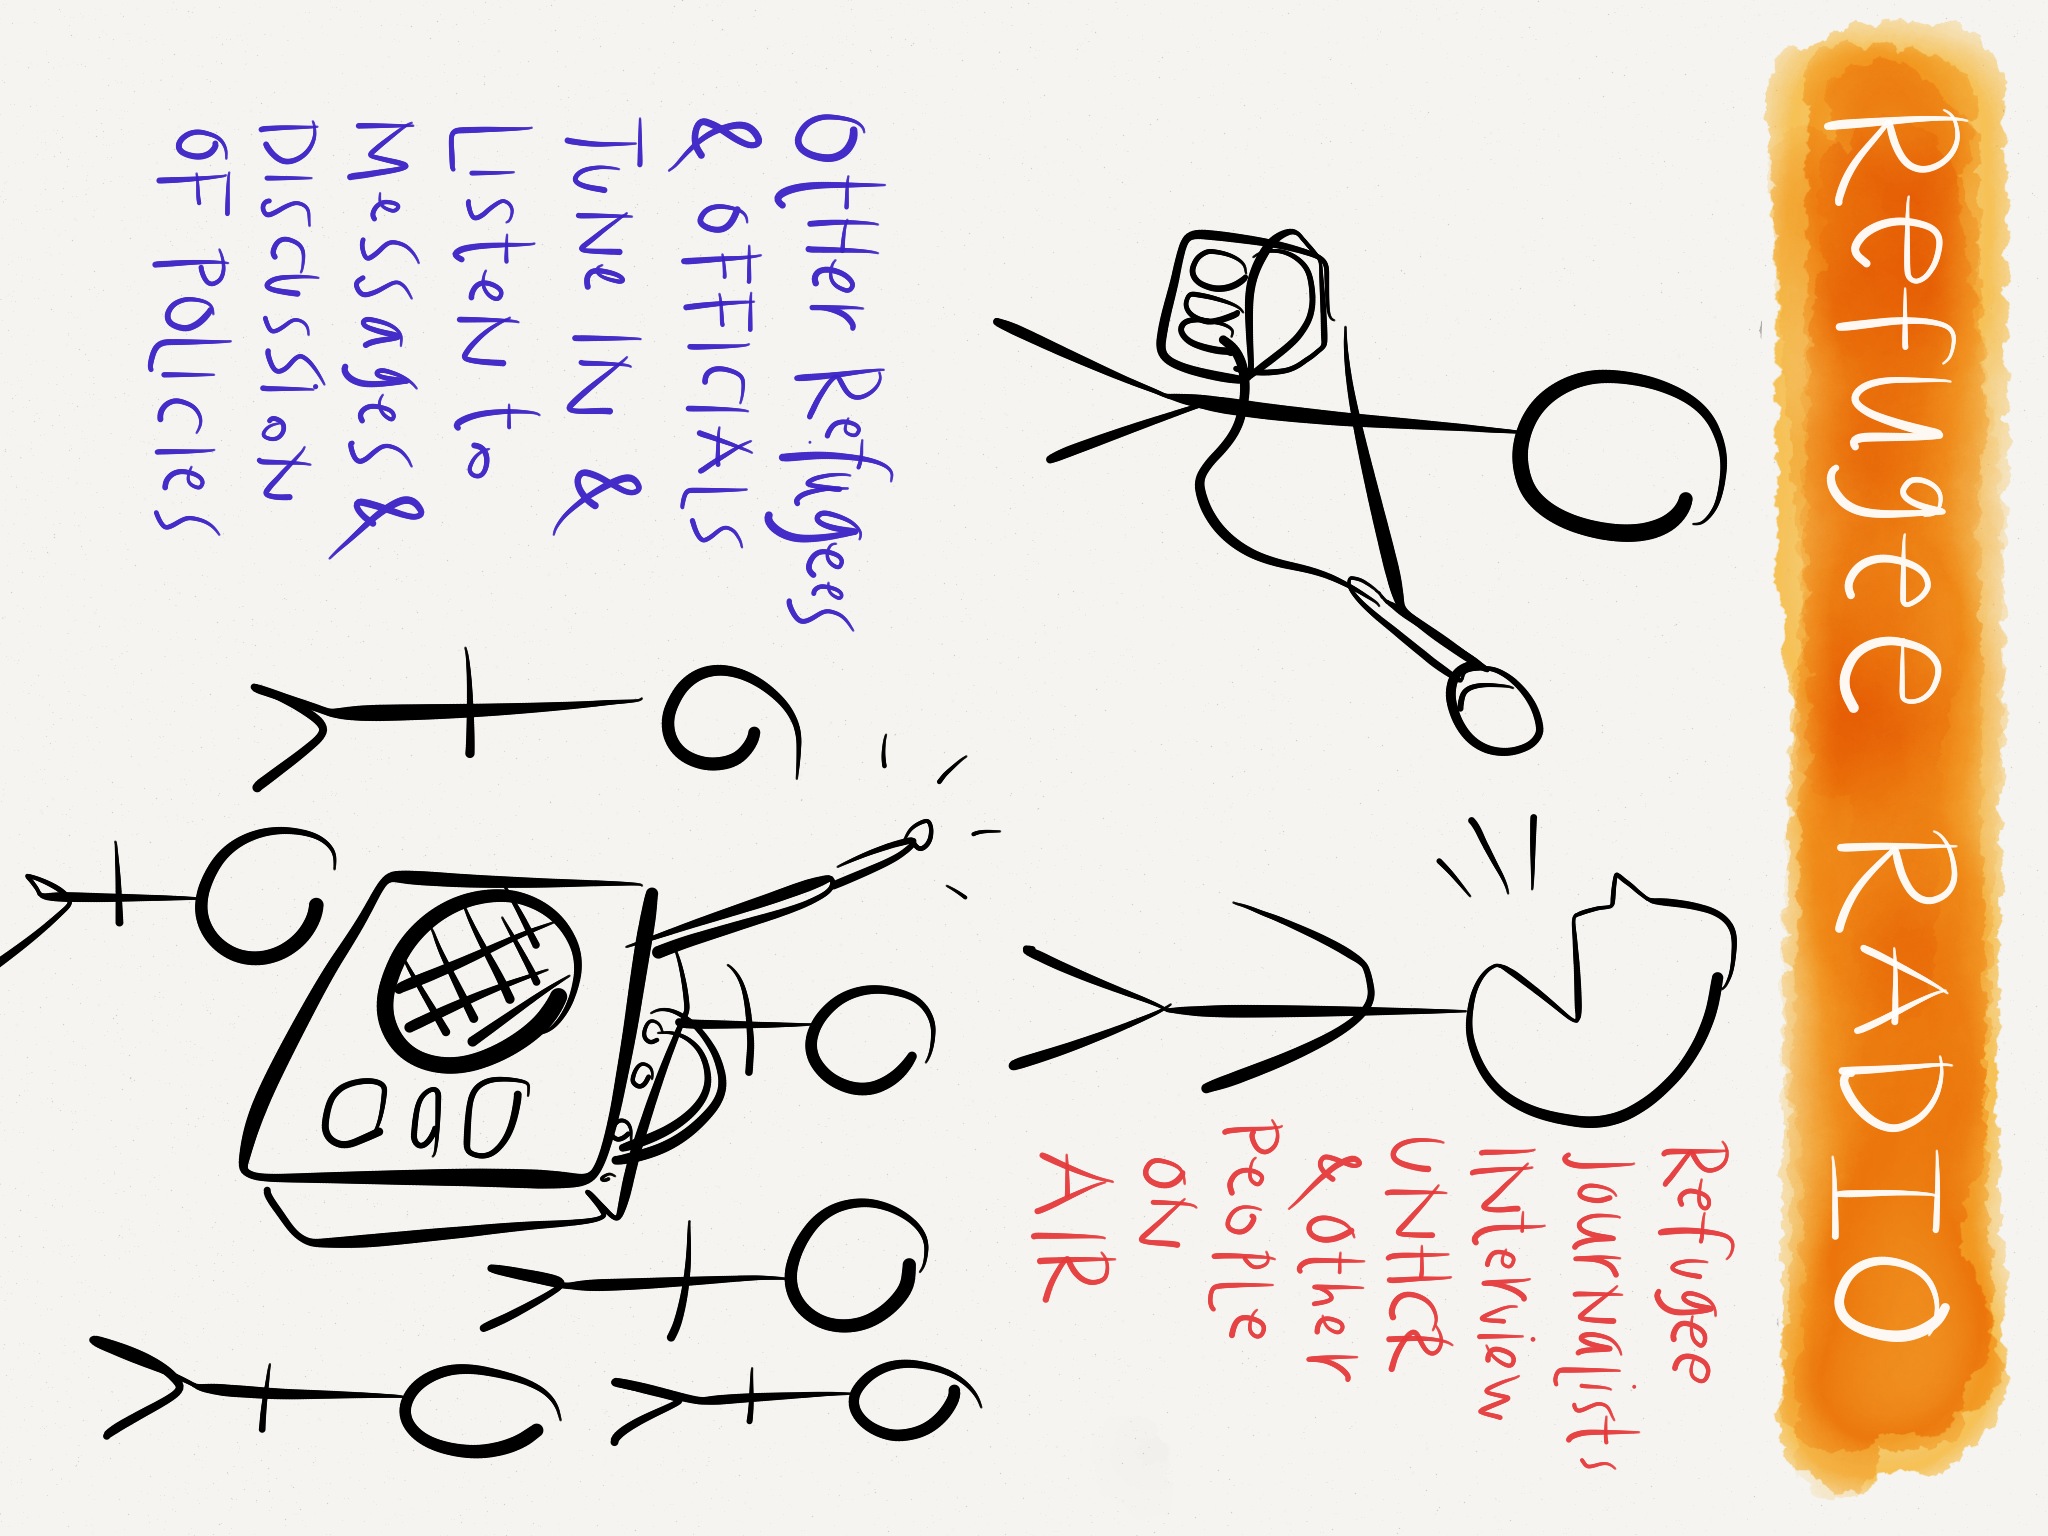 Refugee RADIO
Refugee
Journalists
INterview
UNHCR
& other
People
ON
AIR
OtHer Refugees
& OFFICIALS
TuNe IN &
ListeN to
Messages &
DiscussioN
oF Policies